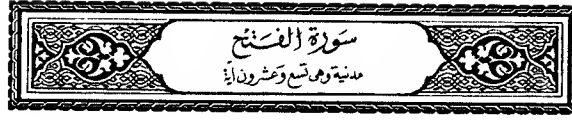 سُورَة الفَتْح
مدنية وهى تسع وَعشرون آية